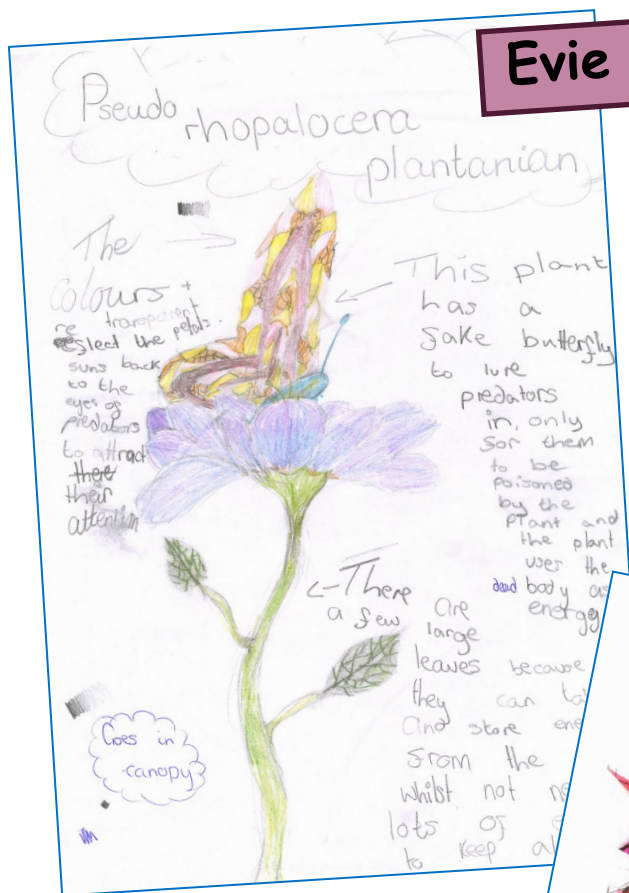 Evie
Pseudo
rhopalocera
plantanian
The
colours +
transparent
reflect the petals
suns back
to the
eyes of
predators
to attract
their
attention
This plant
has a
fake butterfly
to lure
predators
in, only
for them
to be
poisoned
by the
plant and
the plant
uses the
dead body as
energy
There are
a few large
leaves because
they can
and store
from the
whilst not
lots of
to keep
Goes in
canopy